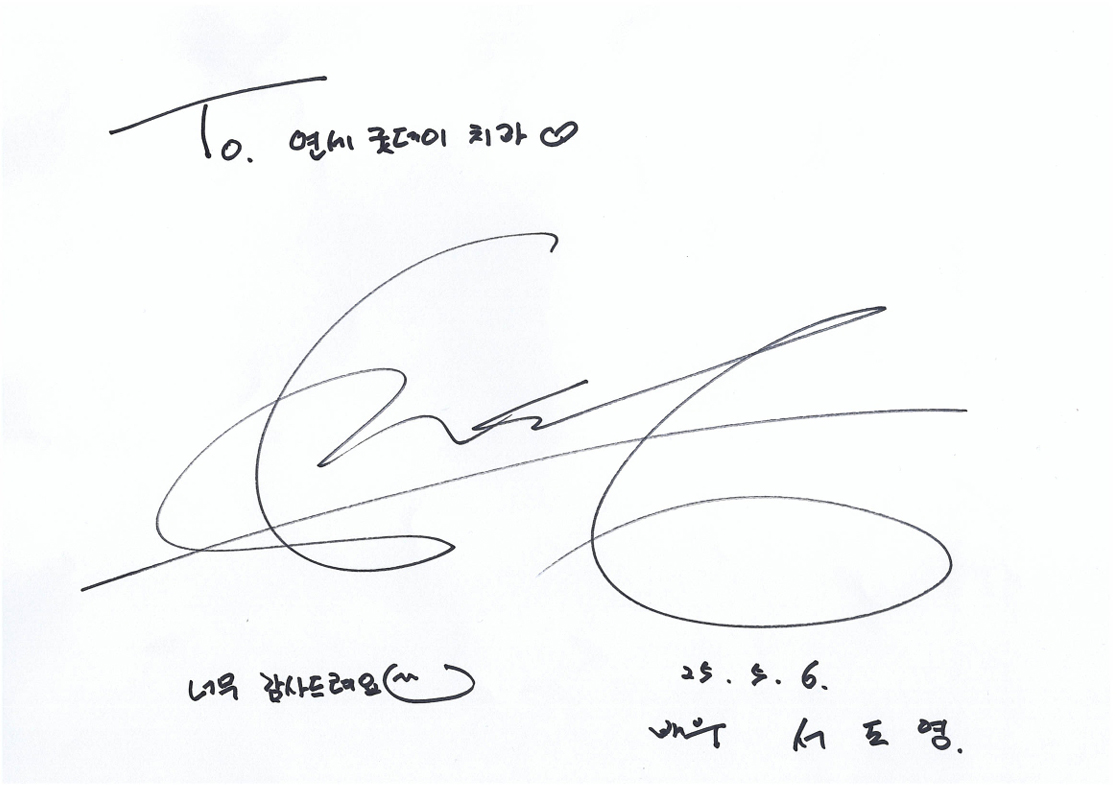 To. 연세 굿데이 치과 ♡
너무 감사드려요
25. 5. 6.
배우 서도영.